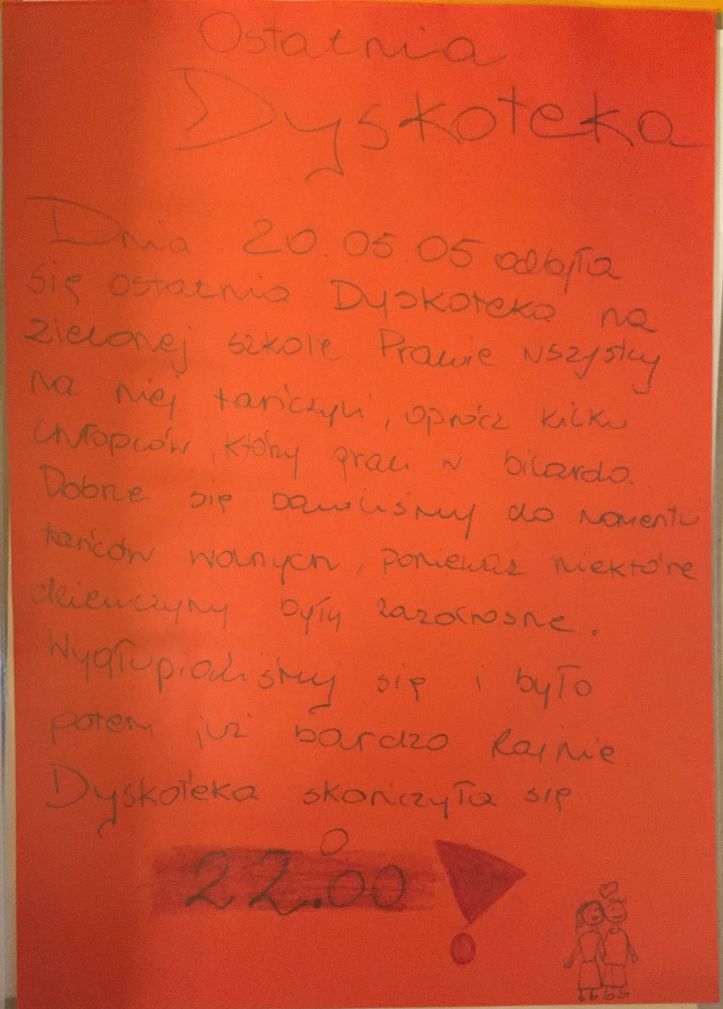 Ostatnia
Dyskoteka
Dnia 20.05.05 odbyła
się ostatnia Dyskoteka na
zielonej szkole Prawie wszyscy
na niej tańczyli, oprócz kilku
chłopców, który grali w bilardo.
Dobrze się bawiliśmy do momentu
tańców wolnych, ponieważ niektóre
dziewczyny były zazdrosne.
Wygłupialiśmy się i było
potem już bardzo fajnie
Dyskoteka skończyła się
o
22.00!